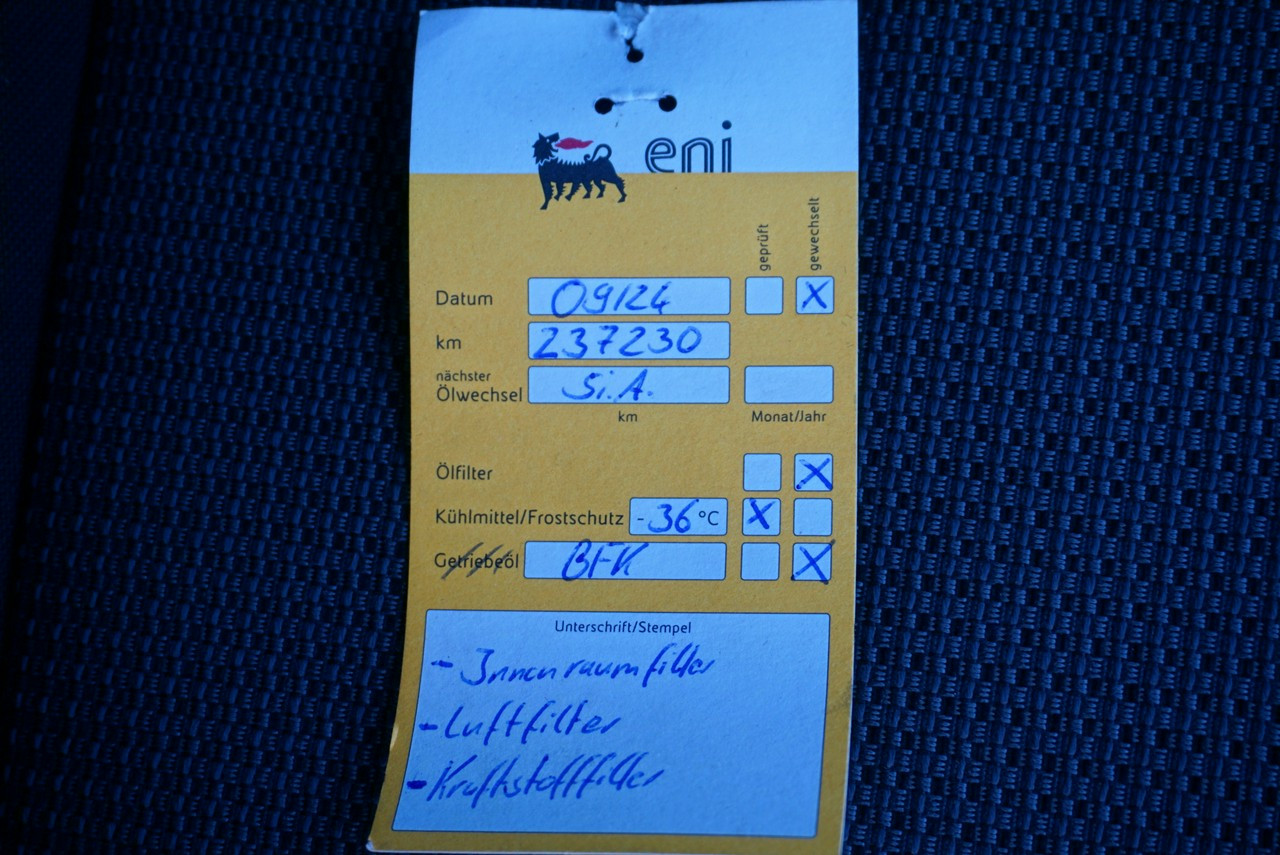 eni
geprüft gewechselt
Datum 09/24 X
km 237230
nächster
Ölwechsel Si.A.
km Monat/Jahr
Ölfilter X
Kühlmittel/Frostschutz -36 °C X
Getriebeöl BFK X
Unterschrift/Stempel
- Innenraumfilter
- Luftfilter
- Kraftstofffilter